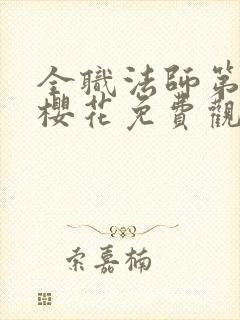 全職法師第
櫻花免費觀
索嘉楠